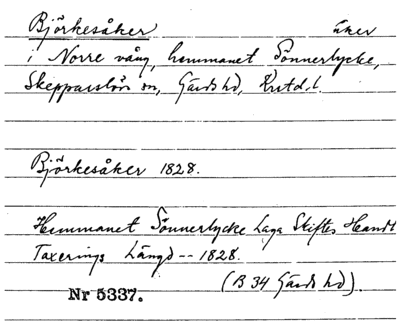 Björkesåker åker
i Norre vång, hemmanet Sönnerlycke,
Skepparslöv sn, Gärds hd, Krstd.l.
Björkesåker 1828.
Hemmanet Sönnerlycke Laga Skiftes Handl
Taxerings Längd -- 1828.
(B 34 Gärds hd).
Nr 5337.